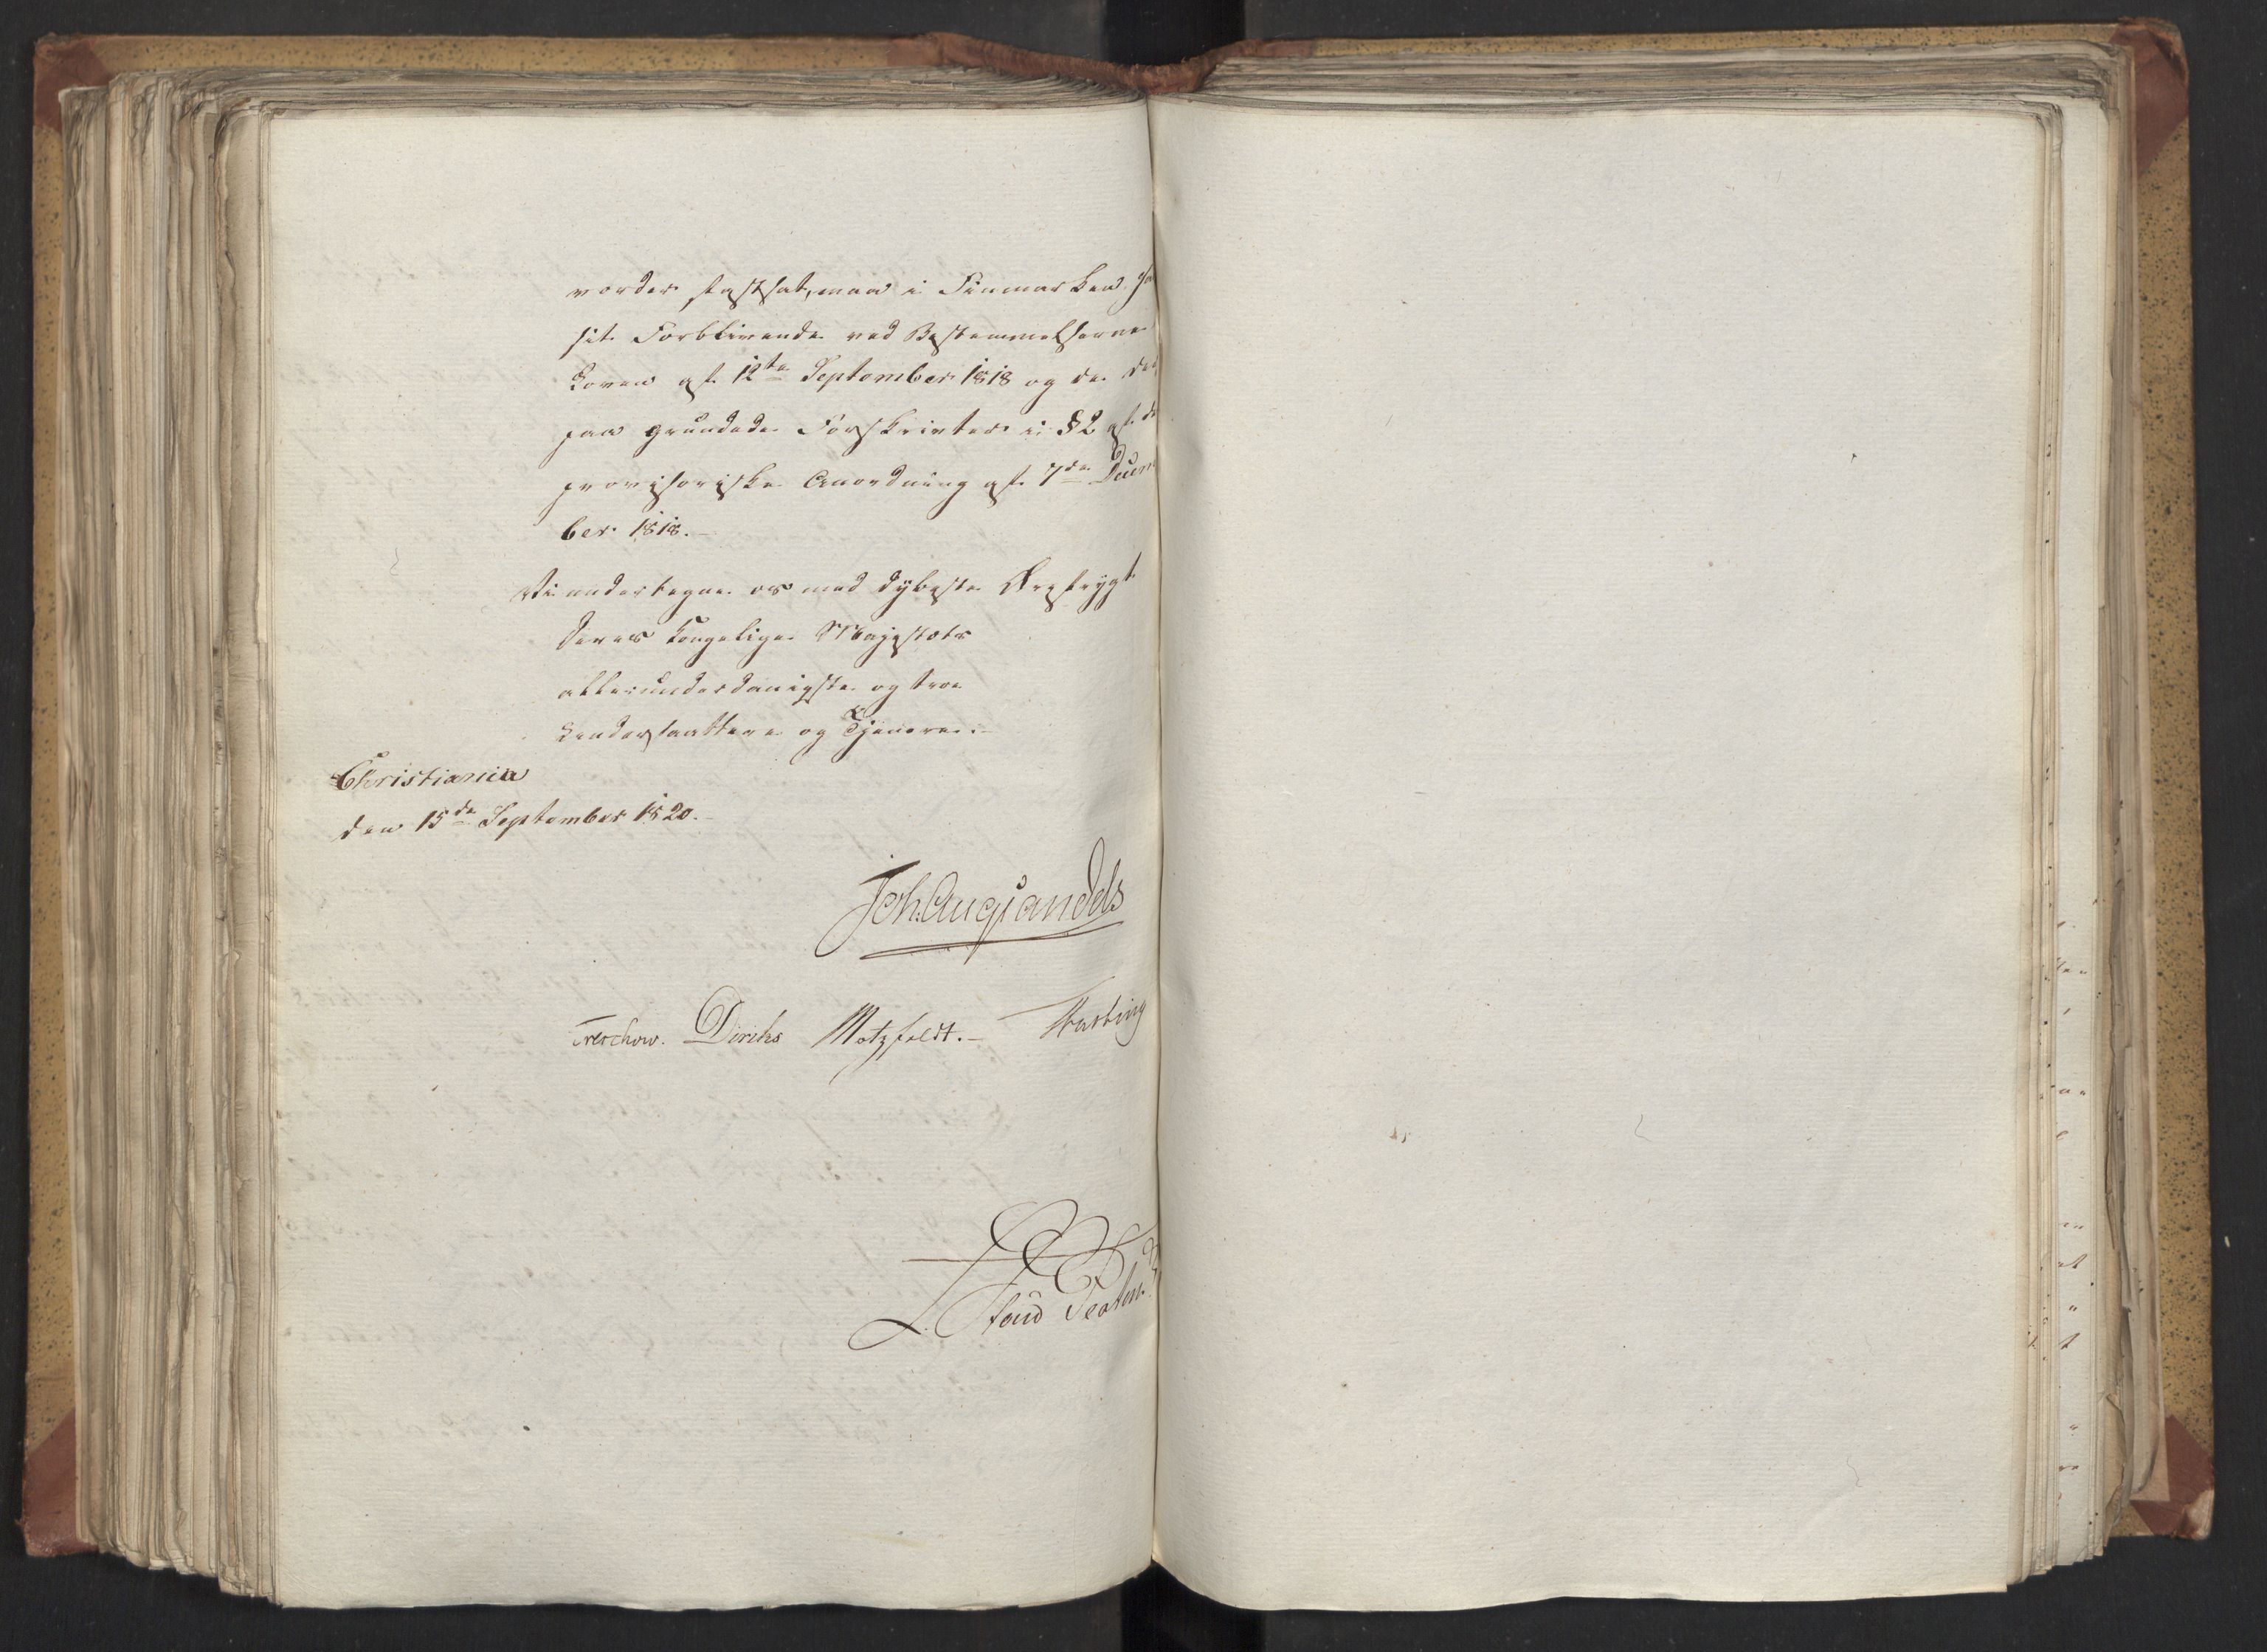 vorder fastsat, maa i Finmarken ha
sit Forblivende ved Bestemmelserne
Loven af 12te September 1818 og de der
paa grundede Forskrivter i § 2 af de
provisoriske Anordning af 7de Decem
ber 1818. –
Vi undertegne os med dybeste Ærefrygt
Deres Kongelige Majestæts
allerunderdanigste og troe
Undersaattere og Tjenere:
Christiania
den 15de September 1820. –
Joh: Aug: Sandels
Treschow. Diriks Motzfeldt. –